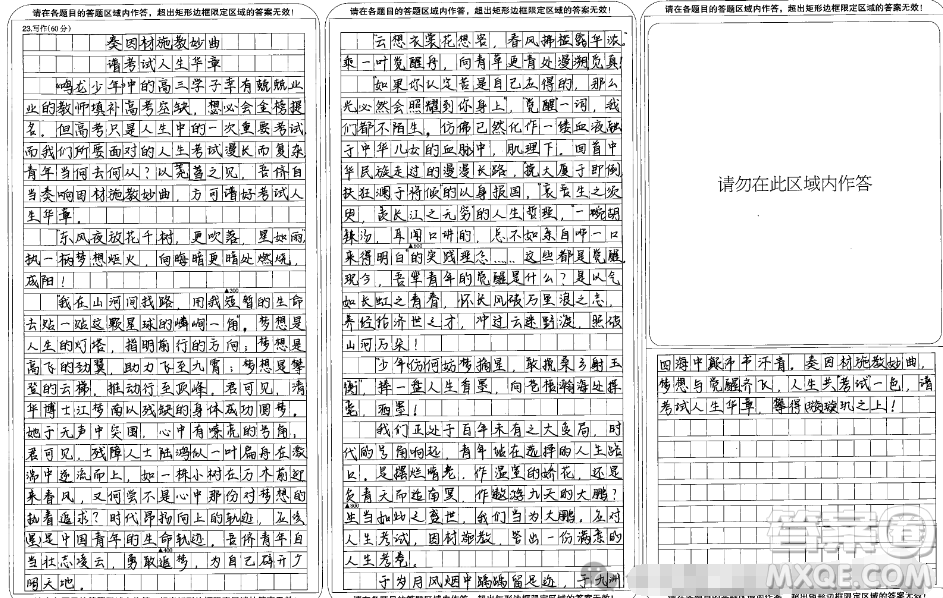 请在各题目的答题区域内作答，超出矩形边框限定区域的答案无效！
23.写作(60分)
奏因材施教妙曲
谱考试人生华章
《鸣龙少年》中的高三学子幸有兢兢业
业的教师填补高考空缺，想必会金榜提
名。但高考只是人生中的一次重要考试
而我们所要面对的人生考试漫长而复杂
青年当何去何从？以之见，吾侪自
当奏响因材施教妙曲，方可谱好考试人
生华章。
“东风夜放花千树，更吹落，星如雨”
执一柄梦想烟火，向晦暗更暗处燃烧，
成阳！
“我在山河间找路，用我短暂的生命
去贴一贴这颗星球的嶙峋一角”。梦想是
人生的灯塔，指明前行的方向；梦想是
高飞的劲翼，助力飞至九霄；梦想是攀
登的云梯，推动行至顶峰。君可见，清
华博士江梦南以残缺的身体成功圆梦。
她于无声中突围，心中有嘹亮的号角。
君可见，残障人士陆鸿似一叶扁舟在激
湍中逆流而上，如一株小树在万木前迎
来春风，又何尝不是心中那份对梦想的
执着追求？时代昂扬向上的轨迹，应该
是中国青年的生命轨迹。吾侪青年自
当壮志凌云，勇敢追梦，为自己辟开
明天地。
请在各题目的答题区域内作答，超出矩形边框限定区域的答案无效！
云想衣裳花想容，春风拂槛露华浓。
乘一叶觉醒舟，向青草更青处漫溯觅真！
“如果你认定苦是自己应得的，那么
光必然会照耀到你身上”，觉醒一词，我
们都不陌生。仿佛已然化作一缕血液融
于中华儿女的血脉中，肌理下。回首中
华民族走过的漫漫长路，“挽大厦于即倒
扶狂澜于将倾的以身报国，“哀吾生之须
臾，羡长江之无穷的人生哲理，“一碗胡
辣汤，耳闻口讲的，总不如亲自呷一口
来得明白”的实践理念……这些都是觉醒
现今，吾辈青年的觉醒是什么？是以气
如长虹之青春，怀长风破万里浪之志，
养经纶济世之才，冲过云迷野渡，照破
山河万朵！
少年仿何妨梦摘星，敢挽桑弓射玉
衡”，择一盘人生青墨，向苍穹瀚海处挥
毫，洒墨！
我们正处于百年未有之大变局，时
代的号角响起，青年站在选择的人生路
口。是摆烂啃老，作温室的娇花，还是
负青天而适南冥，作遨游九天的大鹏？
生当如此之盛世，我们当为大鹏。应对
人生考试，因材施教，答出一份满意的
人生考卷。
于岁月风烟中踽踽留足迹，于九洲
请在各题目的答题区域内作答，超出矩形边框限定区域的答案无效！
请勿在此区域内作答
四海中甄丹书汗青。奏因材施教妙曲，
梦想与觉醒齐飞，人生共考试一色，谱
考试人生华章，璇玑之上！
答案圈
MXQE.COM